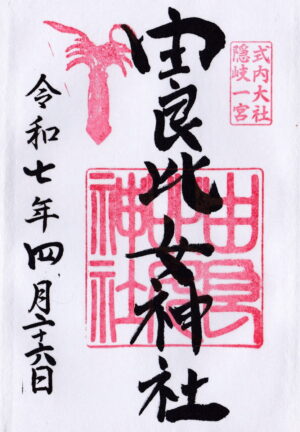 式内大社
隠岐一宮
由良比女神社
由良比女神社
令和七年四月二十六日